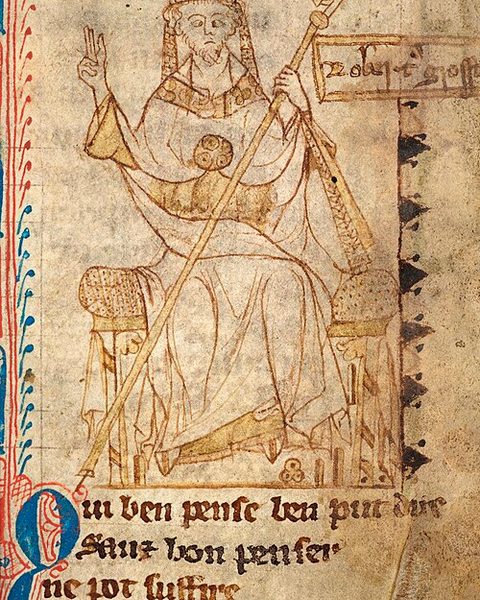 Robert gross
Qui ben pense ben put dire
Sanz bon penser
ne pot suffire